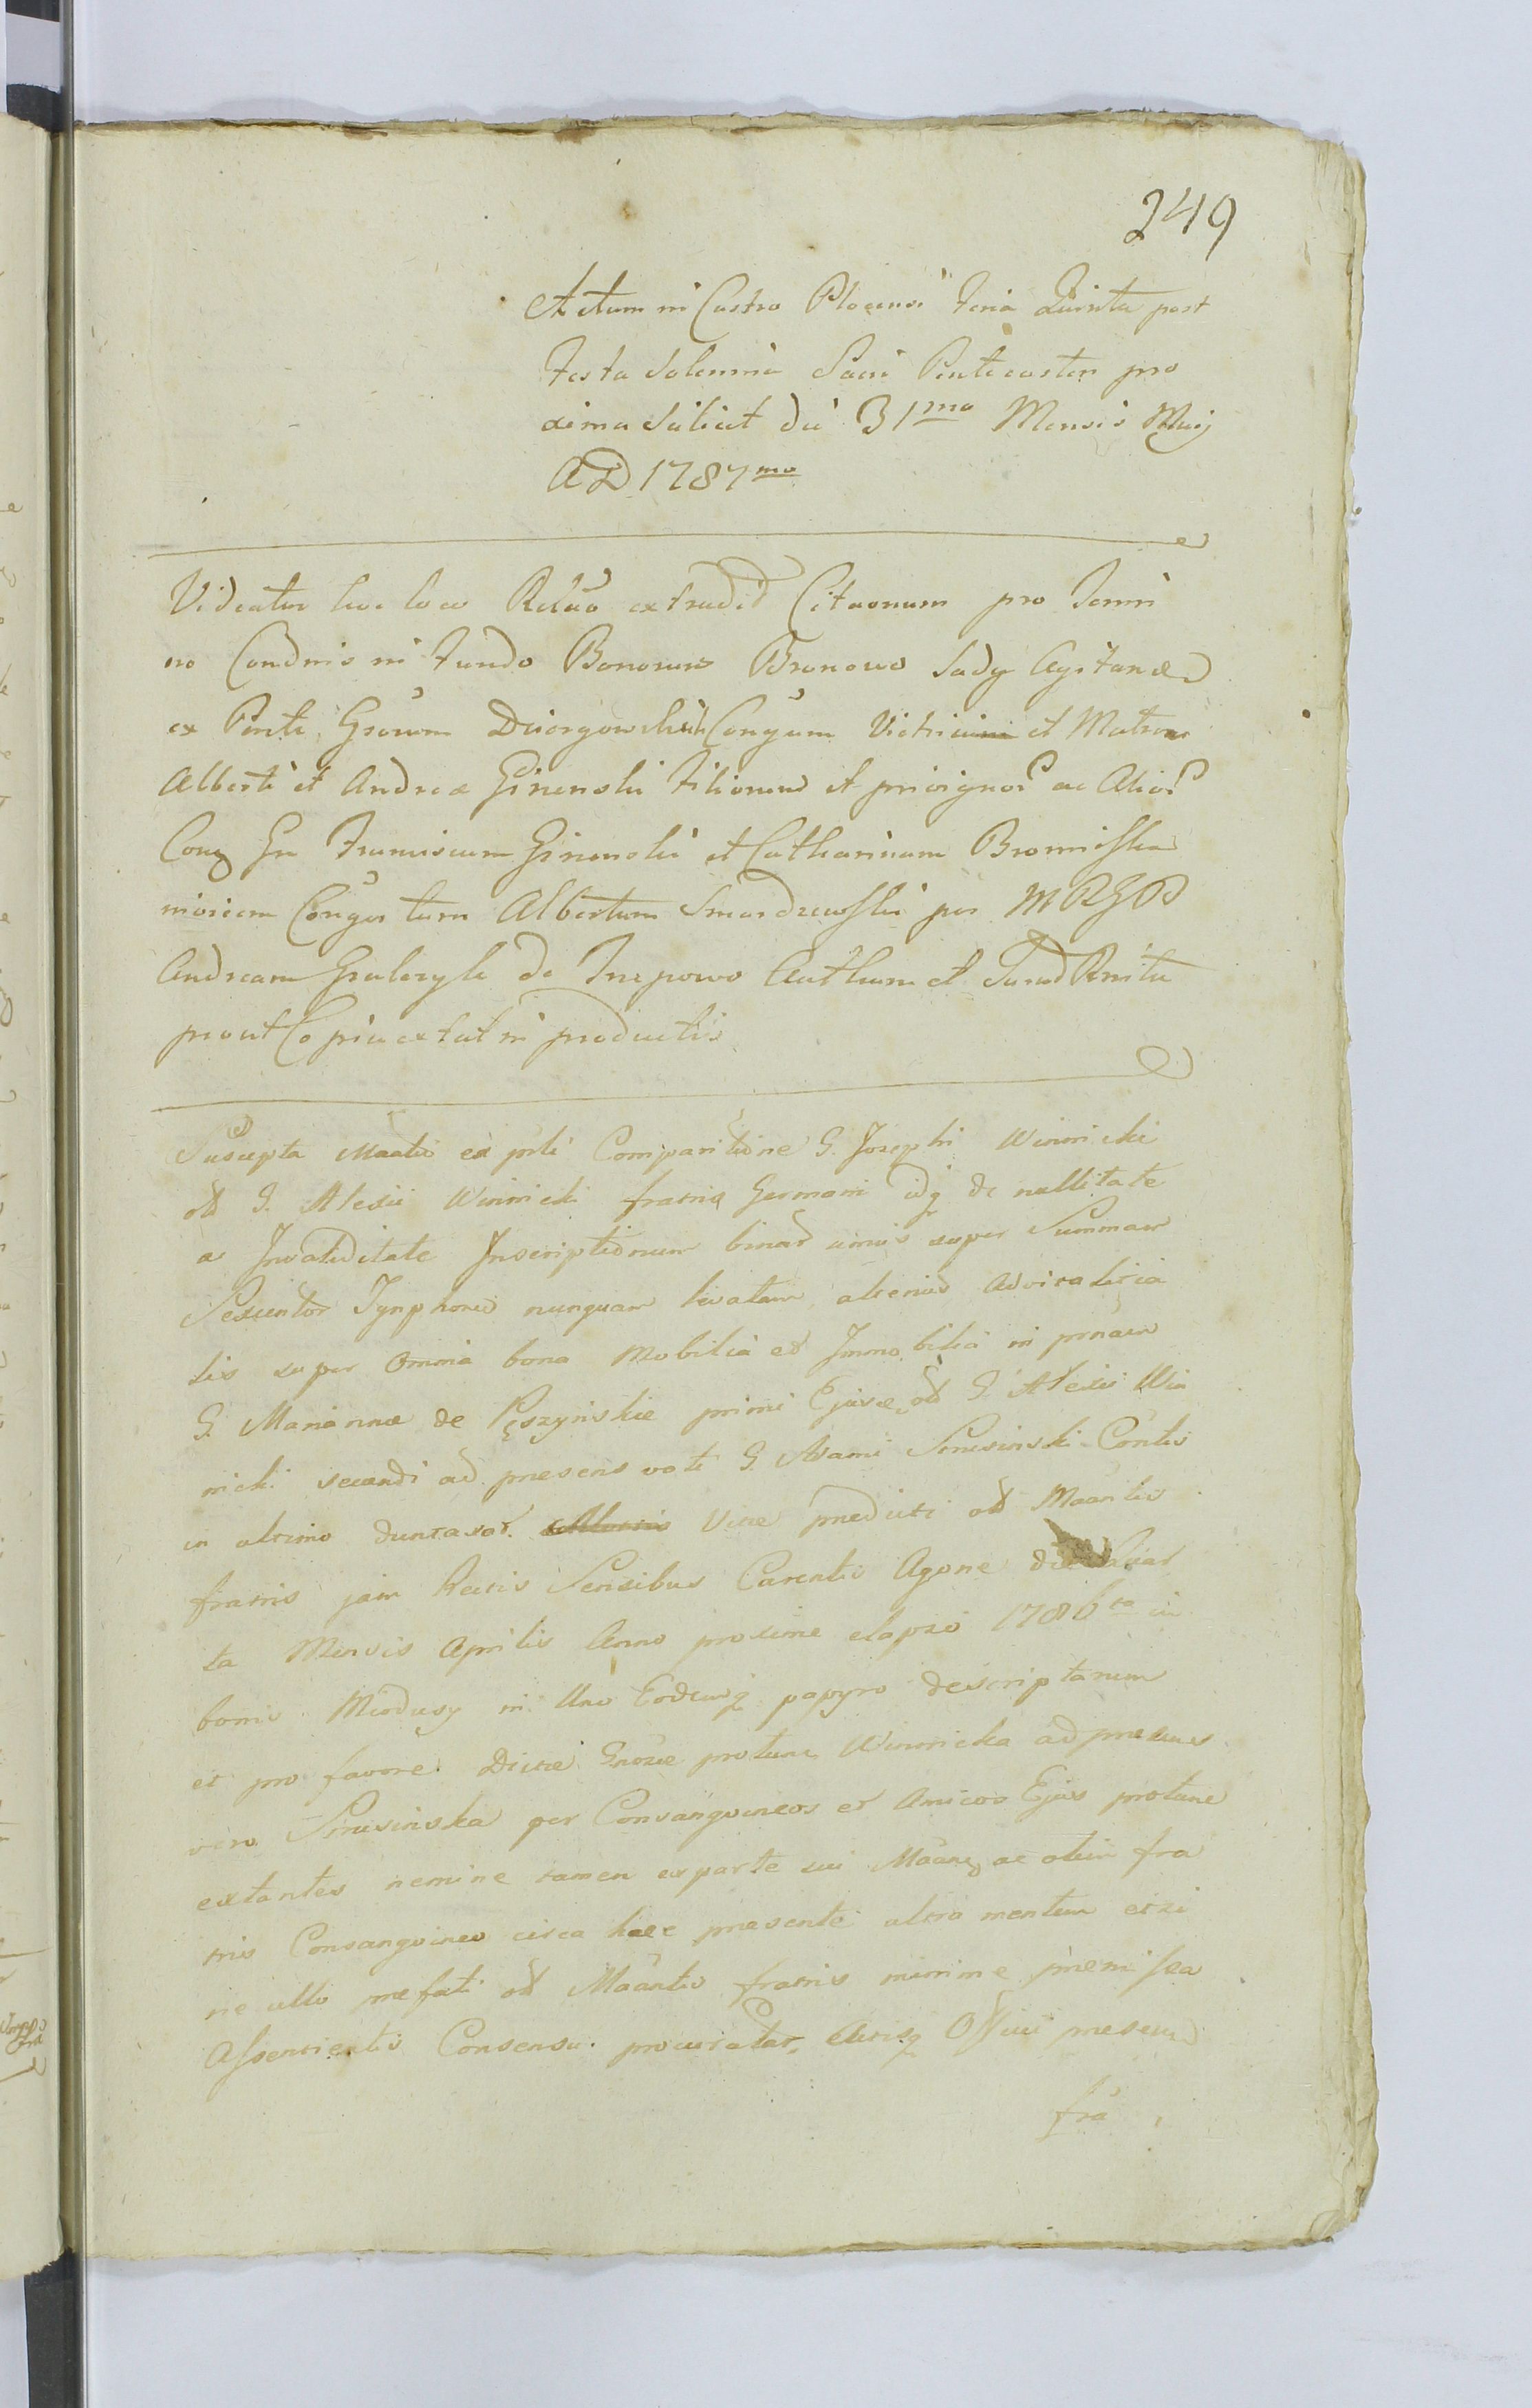 249
Actum in Castro Plocensi Feria Quinta post
Festa Solennia Sacri Pentecosten pro
xima Scilicet die 31ma Mensis Maij
AD 1787mo
Videatur hoc loco Relao extradit Citaonum pro Termi
no Condnis in Fundo Bonorum Bronowo Sady Agitanae
ex Parte Gsorum Conjum Victrici et Matrom
Alberti et Andreae Ginenski Filiorum et privignor ac Alior
Conq Gn Franciscum Ginenski et Catharinam Bromirska
niorem Conjes tum Albertum Smardzewski per MRGP
Andream de Anth et
prout Copia extat in productis
Suscepta Maatio ex prti Comparitione G. Josephi Winnicki
olt G. Alexii Winnicki fratris Germani idq de nullitate
a Invaliditate Inscriptionum binar unius super Summam
Sexcentor Tynphonu nunquam levatam alterius advitalitia
tis super Omnia bona Mobilia et Immobilia in prnam
G. Mariannae de primi Ejusae olt G. Alexii Win
nicki secundi ad presens voti G. Adami Smusinski Contis
in ultimo duntaxat Vitae praedicti olt Maantis
fratris jam Rectis Sensibus Carentis Agone die
ta Mensis Aprilis Anno proxime elapso 1786to in
bonis Miodusy in Uno Eodemq papyro descriptarum
et pro favore Dictae Gnosae protunc Winnicka ad praesens
vero Smusinska per Consanguineos et Amicos Ejus protunc
extantes nemine tamen ex parte sui Maanq ac olim fra
tris Consanguineo circa haec praesente ultro mentem etsi
ne ullo prefati olt Maantis fratris minime premissa
Assentientis Consensu procuratar, Actisq Officii presen
fra